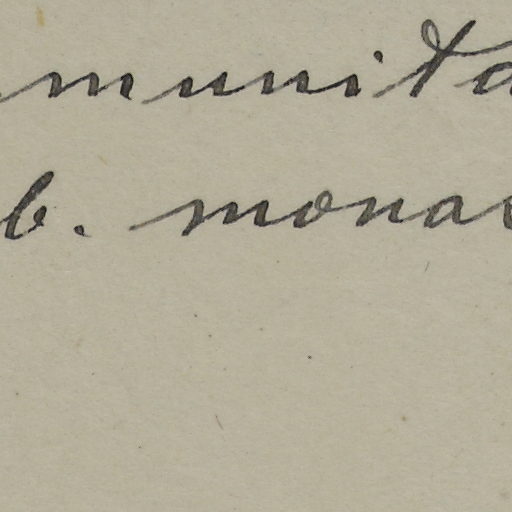 munita
b. monas